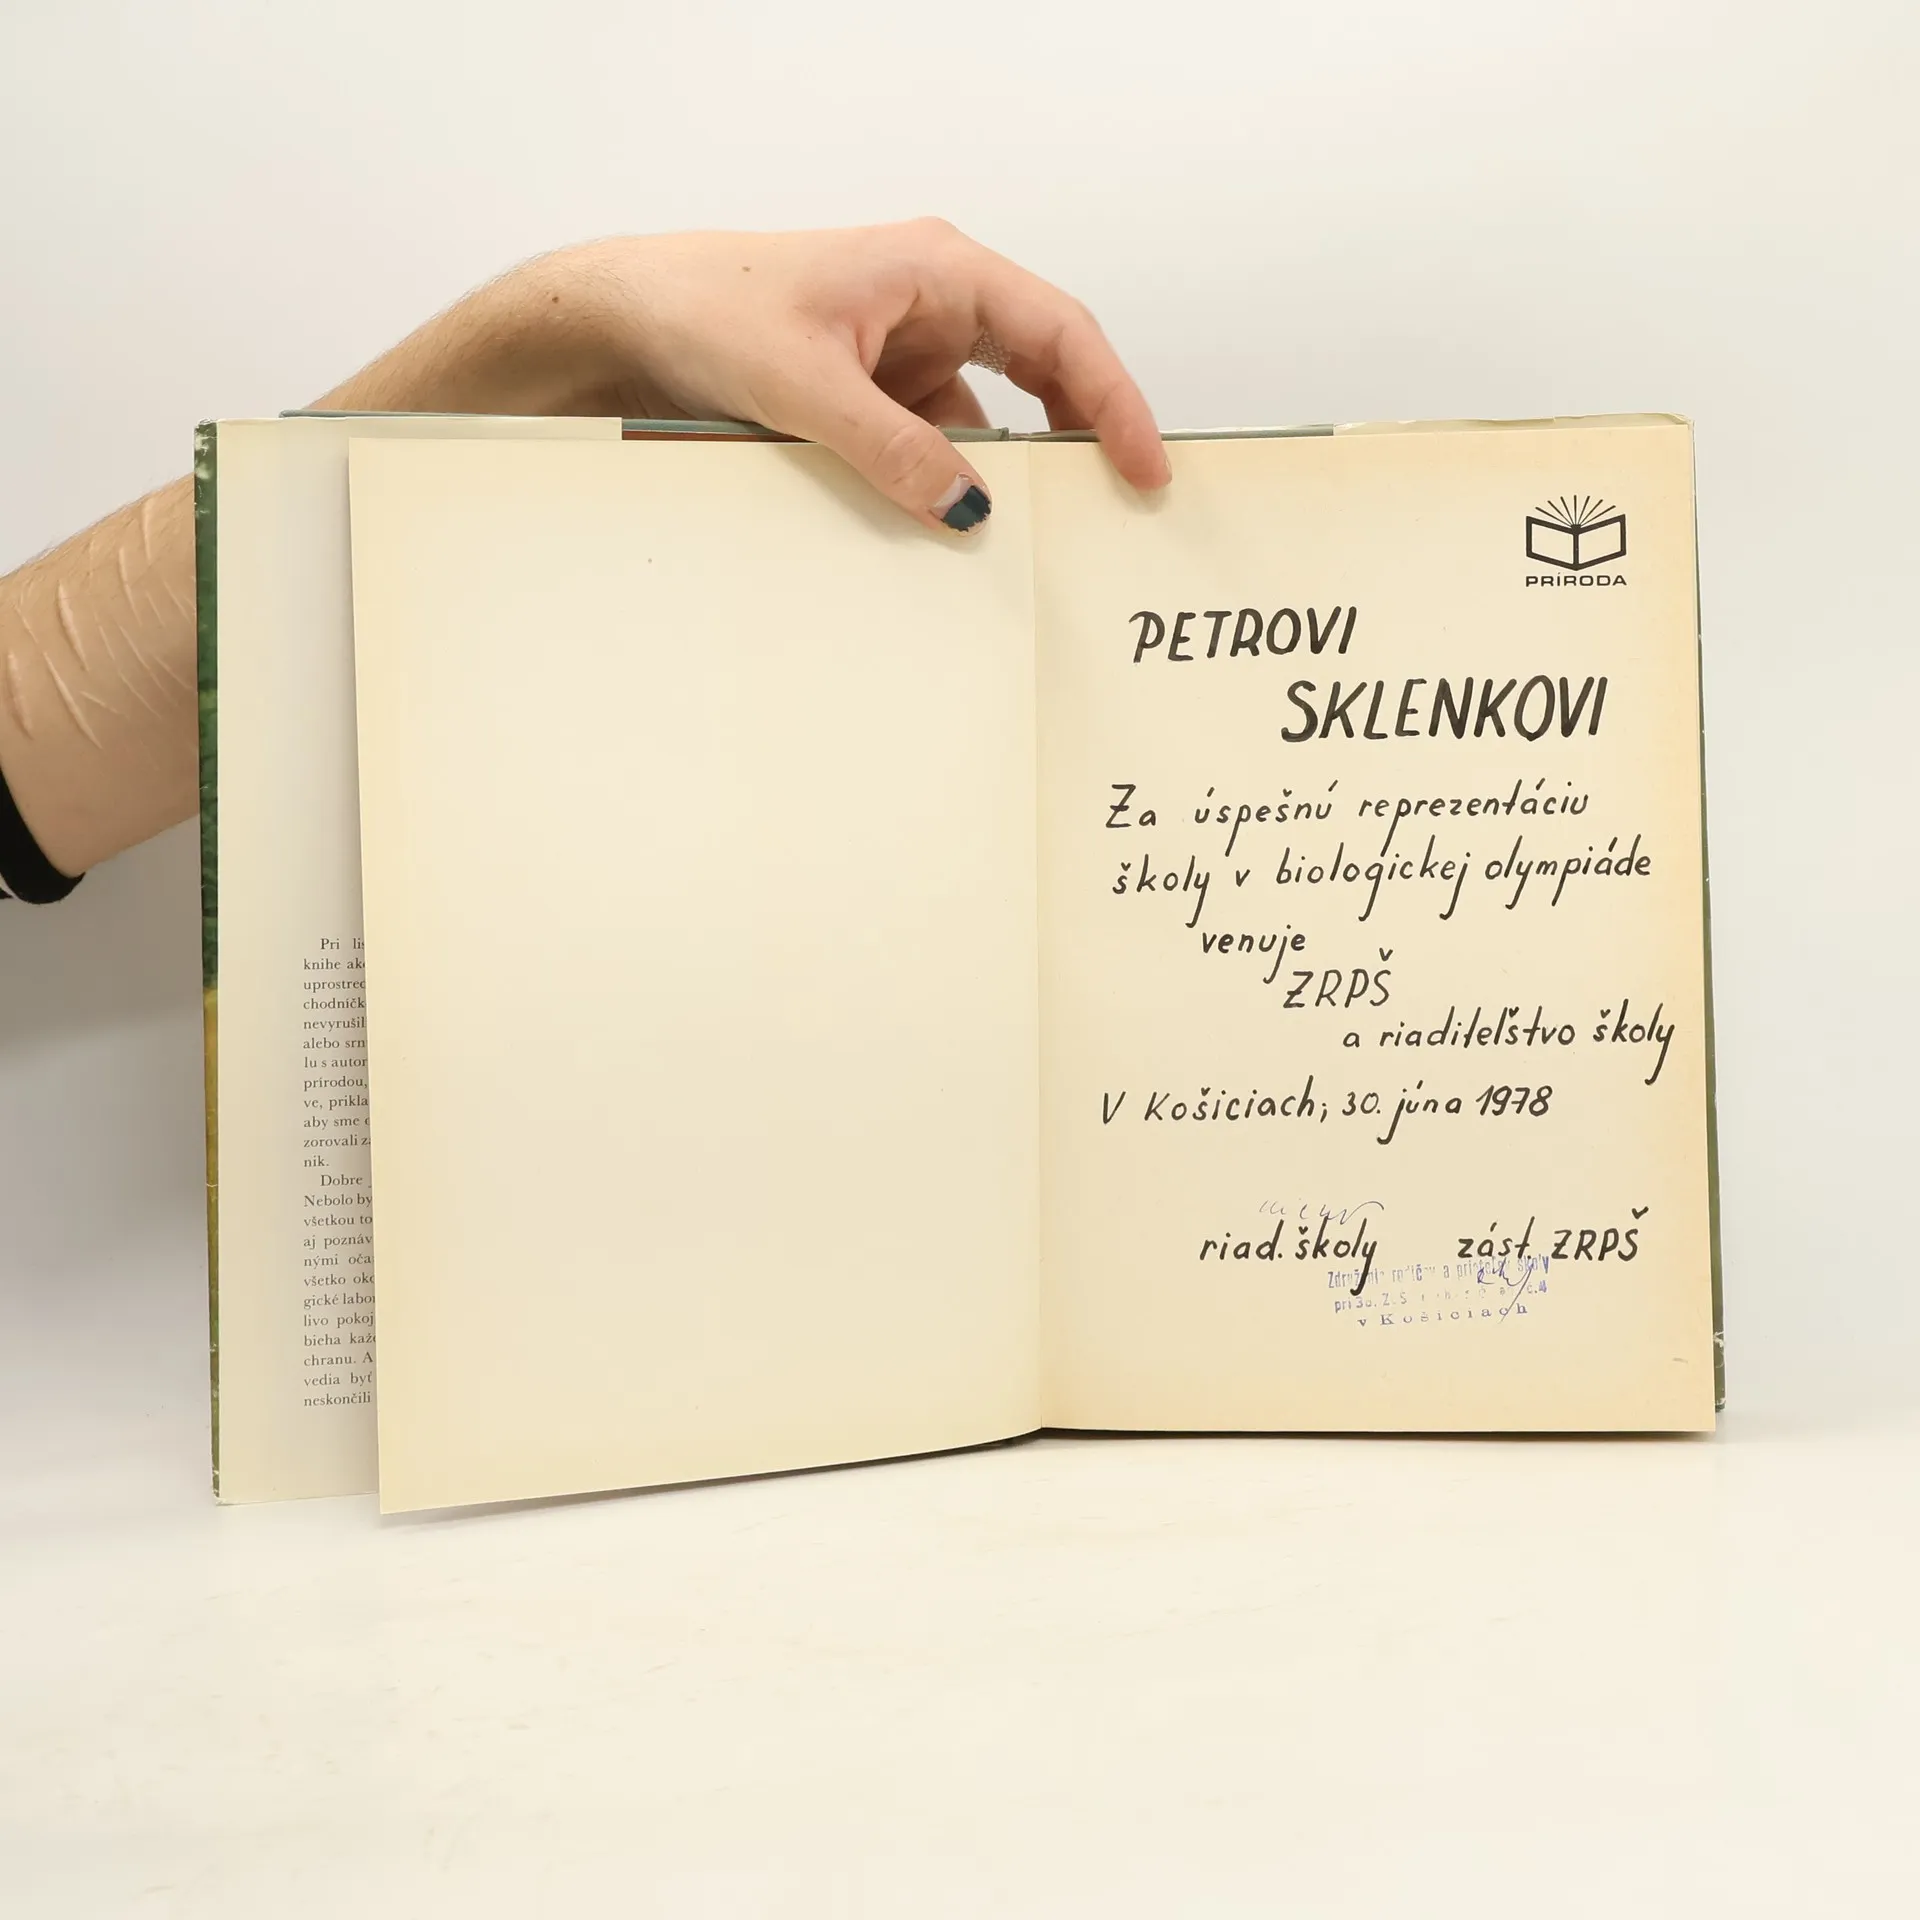 Pri
knihe
chodníčk
nevyrušil
alebo srn
lu s autor
prírodou,
ve, prikla
aby sme
zorovali
nik.
Dobre
Nebolo by
všetkou to
aj poznáv
nými oča
všetko oko
gické labor
livo pokoj
bieha
chranu. A
vedia byť
neskončili
PRÍRODA
PETROVI
SKLENKOVI
Za úspešnú reprezentáciu
školy v biologickej olympiáde
venuje
ZRPŠ
a riaditeľstvo školy
V Košiciach; 30. júna 1978
riad. školy zást. ZRPŠ
Združenie rodičov a priateľov školy
v Košiciach